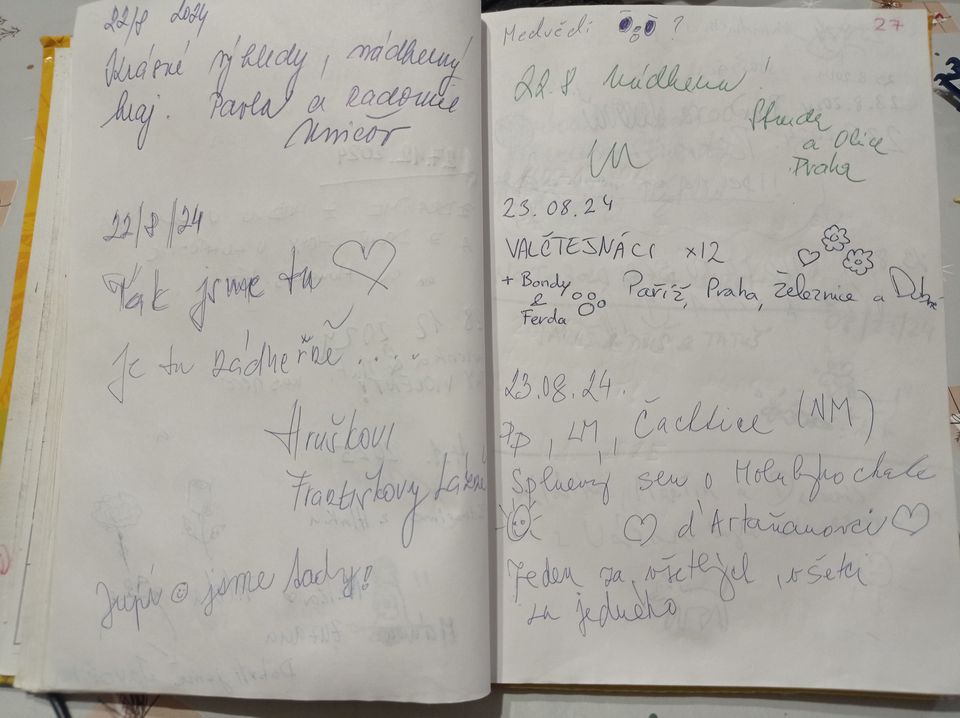 22/8 2024
Krásné výhledy, nádherný
kraj. Pavla a Radomír
Uničov
22/8/24
Tak jsme tu
Je tu nádherně.....
Hruškovi
Františkovy Lázně
Jupí jsme tady!
Medvědi ?
27
22.8. nádhera!
a Olice
Praha
23.08.24
VALČTEJNÁCI x12
+ Bondy
&
Ferda
Paříž, Praha, Železnice a Dobré
23.08.24.
PP, LM, Čachtice (NM)
Splnený sen o Holubyho chate
d'Artaňanovci
Jeden za všetkých, všetci
za jedného